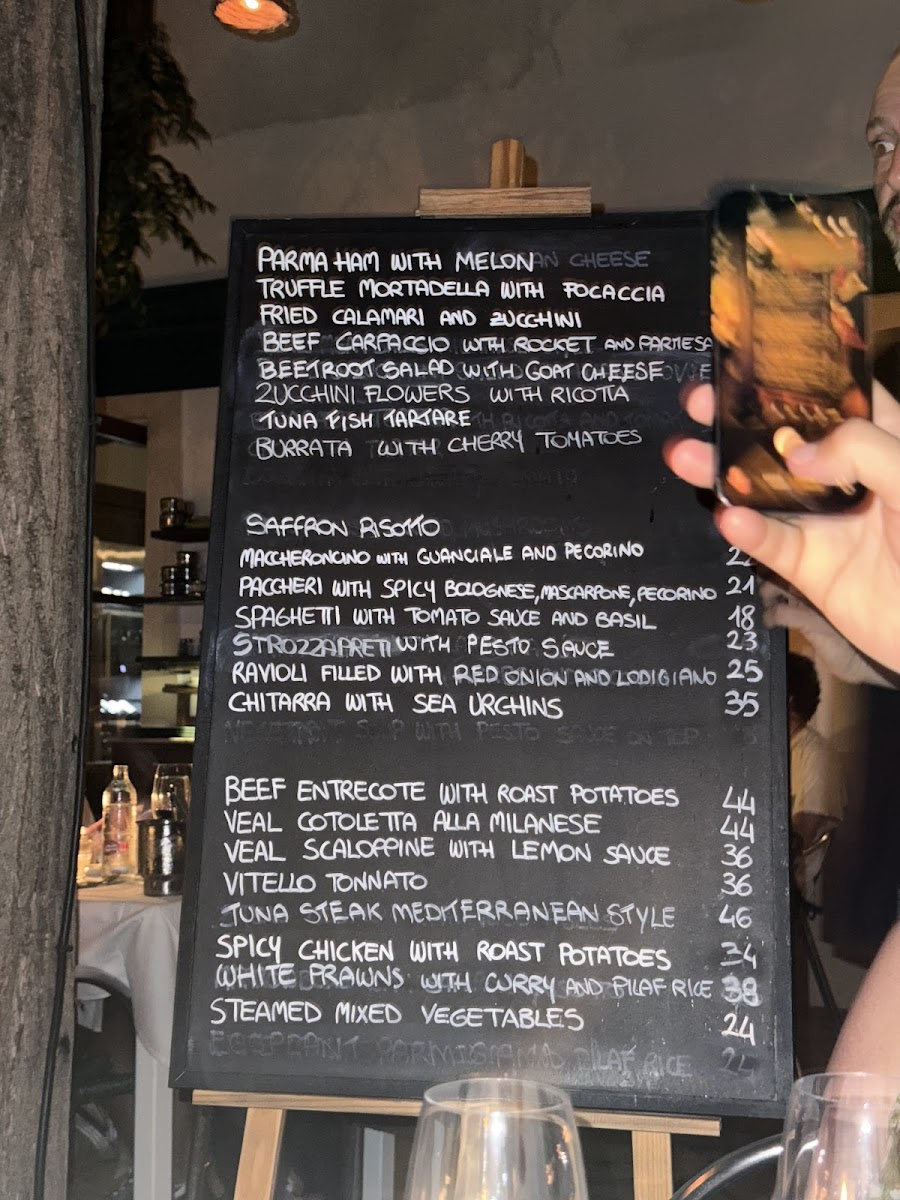 PARMA HAM WITH MELON AN CHEESE
TRUFFLE MORTADELLA WITH FOCACCIA
FRIED CALAMARI AND ZUCCHINI
BEEF CARPACCIO WITH ROCKET AND PARMESA
BEETROOT SALAD WITH GOAT CHEESE
ZUCCHINI FLOWERS WITH RICOTTA
TUNA FISH TARTARE
BURRATA WITH CHERRY TOMATOES
SAFFRON RISOTTO
MACCHERONCINO WITH GUANCIALE AND PECORINO 22
PACCHERI WITH SPICY BOLOGNESE, MASCARPONE, PECORINO 21
SPAGHETTI WITH TOMATO SAUCE AND BASIL 18
STROZZAPRETI WITH PESTO SAUCE 23
RAVIOLI FILLED WITH RED ONION AND LODIGIANO 25
CHITARRA WITH SEA URCHINS 35
SOUP WITH PESTO SAUCE ON TOP
BEEF ENTRECOTE WITH ROAST POTATOES 44
VEAL COTOLETTA ALLA MILANESE 44
VEAL SCALOPPINE WITH LEMON SAUCE 36
VITELLO TONNATO 36
TUNA STEAK MEDITERRANEAN STYLE 46
SPICY CHICKEN WITH ROAST POTATOES 34
WHITE PRAWNS WITH CURRY AND PILAF RICE 38
STEAMED MIXED VEGETABLES 24
EGGPLANT PARMIGIANA PILAF RICE